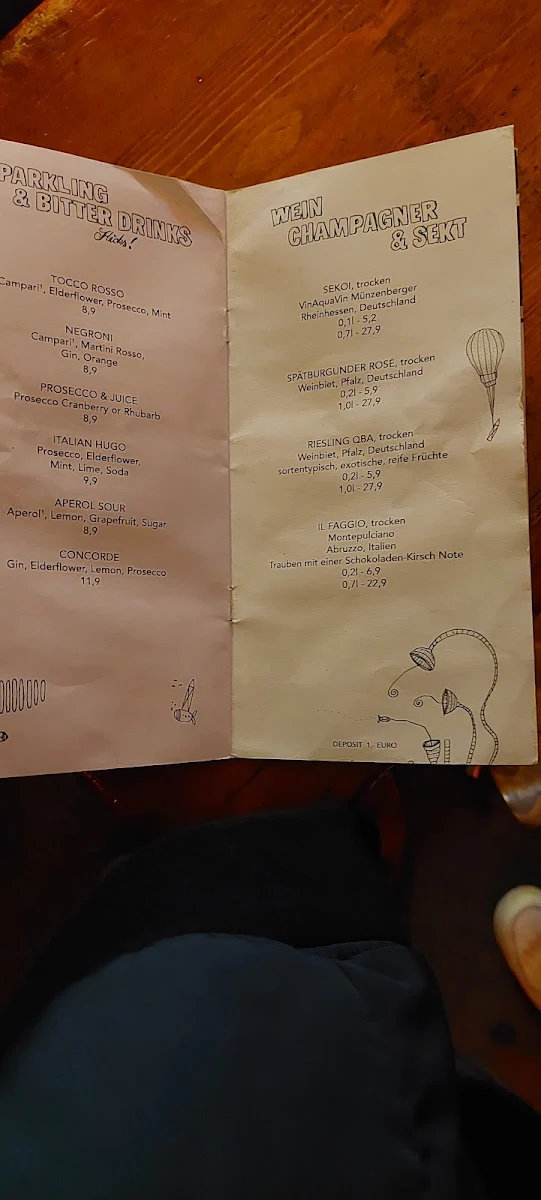 PARKLING
& BITTER DRINKS
Hicks!
TOCCO ROSSO
Campari¹, Elderflower, Prosecco, Mint
8,9
NEGRONI
Campari¹, Martini Rosso,
Gin, Orange
8,9
PROSECCO & JUICE
Prosecco Cranberry or Rhubarb
8,9
ITALIAN HUGO
Prosecco, Elderflower,
Mint, Lime, Soda
9,9
APEROL SOUR
Aperol¹, Lemon, Grapefruit, Sugar
8,9
CONCORDE
Gin, Elderflower, Lemon, Prosecco
11,9
WEIN
CHAMPAGNER
& SEKT
SEKOI, trocken
VinAquaVin Münzenberger
Rheinhessen, Deutschland
0,1l - 5,2
0,7l - 27,9
SPÄTBURGUNDER ROSÉ, trocken
Weinbiet, Pfalz, Deutschland
0,2l - 5,9
1,0l - 27,9
RIESLING QBA, trocken
Weinbiet, Pfalz, Deutschland
sortentypisch, exotische, reife Früchte
0,2l - 5,9
1,0l - 27,9
IL FAGGIO, trocken
Montepulciano
Abruzzo, Italien
Trauben mit einer Schokoladen-Kirsch Note
0,2l - 6,9
0,7l - 22,9
DEPOSIT 1,- EURO